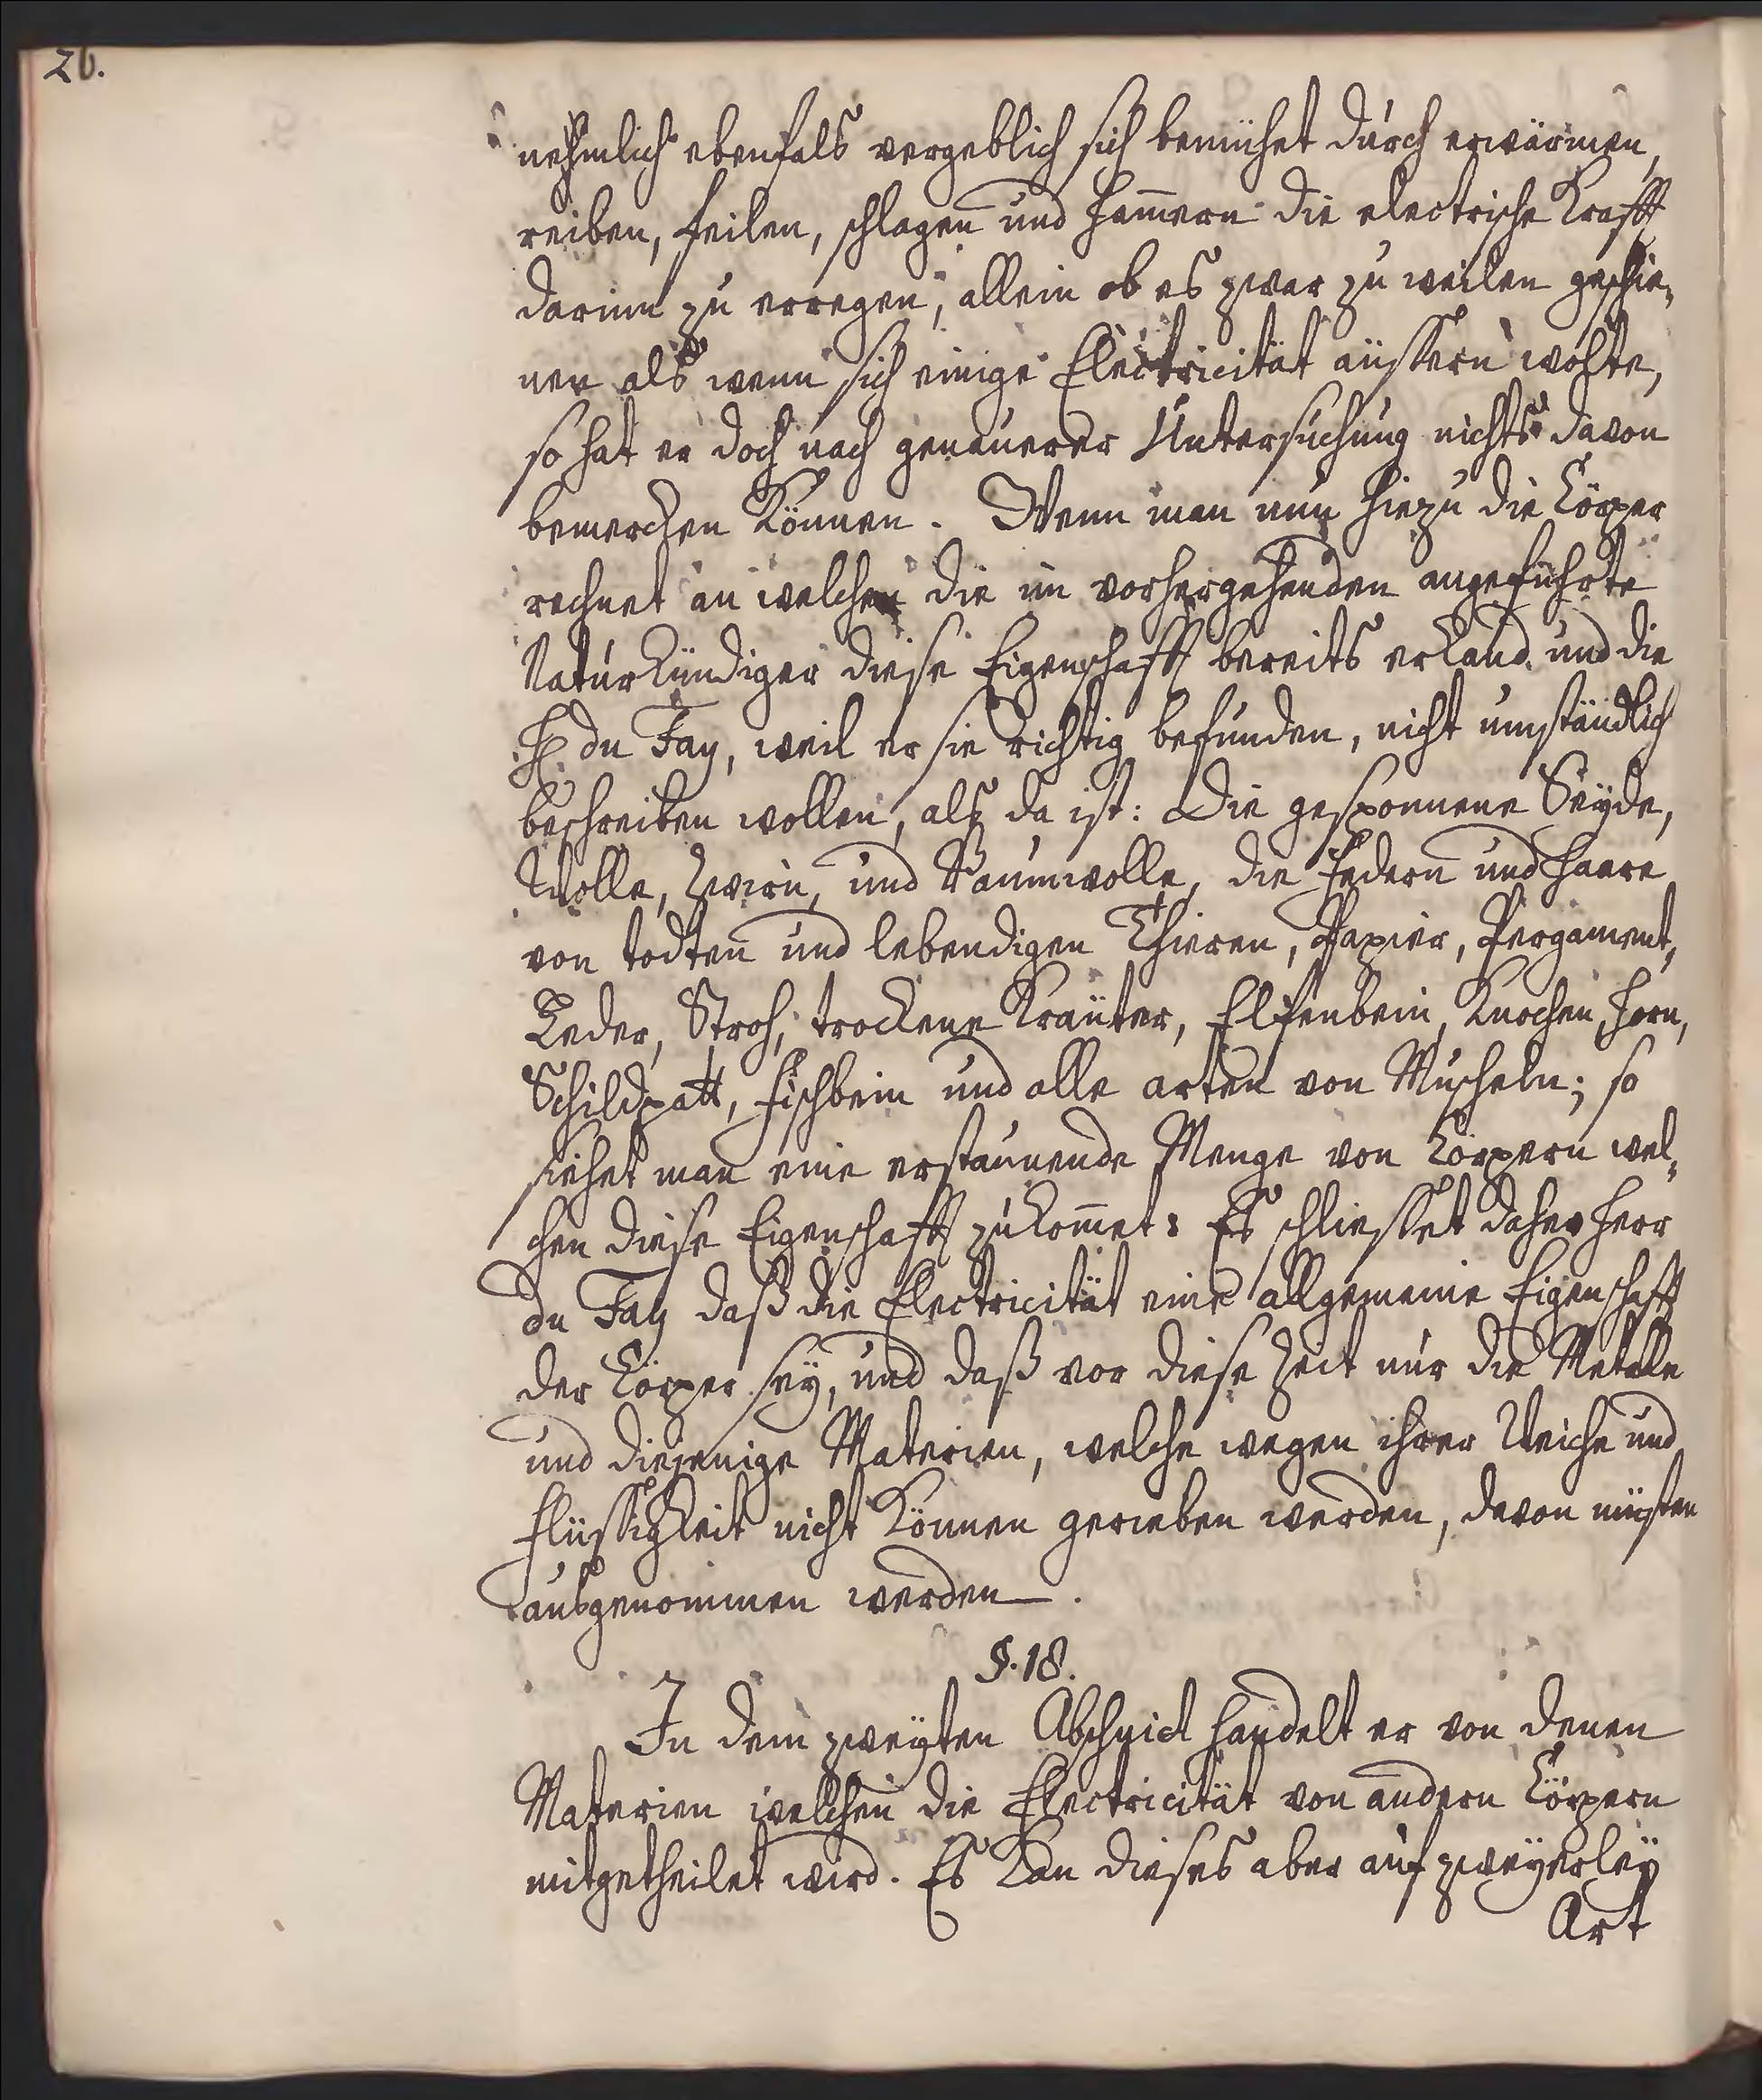 26.
nehmlich ebenfals vergeblich sich bemühet durch erwärmen,
reiben, feilen, schlagen und ham̄ern die electrische Krafft
darinn zu erregen, allein ob es zwar zu weilen geschie-
nen als wenn sich einige Electricität äussern wolte,
so hat er doch nach genauerer Untersuchung nichts davon
bemercken können. Wenn man nun hiezu die Cörper
rechnet an welchen die im vorhergehenden angeführte
Naturkündiger diese Eigenschafft bereits erkand und die
H. du Fay, weil er sie richtig befunden, nicht umständlich
beschreiben wollen, als da ist: Die gesponnene Seyde,
Wolle, Zwirn, und Baumwolle, die Federn und Haare
von todten und lebendigen Thieren, Papier, Pergament,
Leder, Stroh, trockene Kräuter, Elfenbein, Knochen, Horn,
Schildpatt, Fischbein und alle arten von Muscheln; so
siehet man eine erstaunende Menge von Cörpern wel-
chen diese Eigenschafft zukom̄et. Es schliesset daher Herr
du Fay daß die Electricität eine allgemeine Eigenschafft
der Cörper sey, und daß vor diese Zeit nur die Metalle
und diejenige Materien, welche wegen ihrer Weiche und
Flüssigkeit nicht können gerieben werden, davon müsten
ausgenommen werden.
§. 18.
In dem zweyten Abschnict handelt er von denen
Materien welchen die Electricität von andern Cörpern
mitgetheilet wird. Es kan dieses aber auf zweyerley
Art